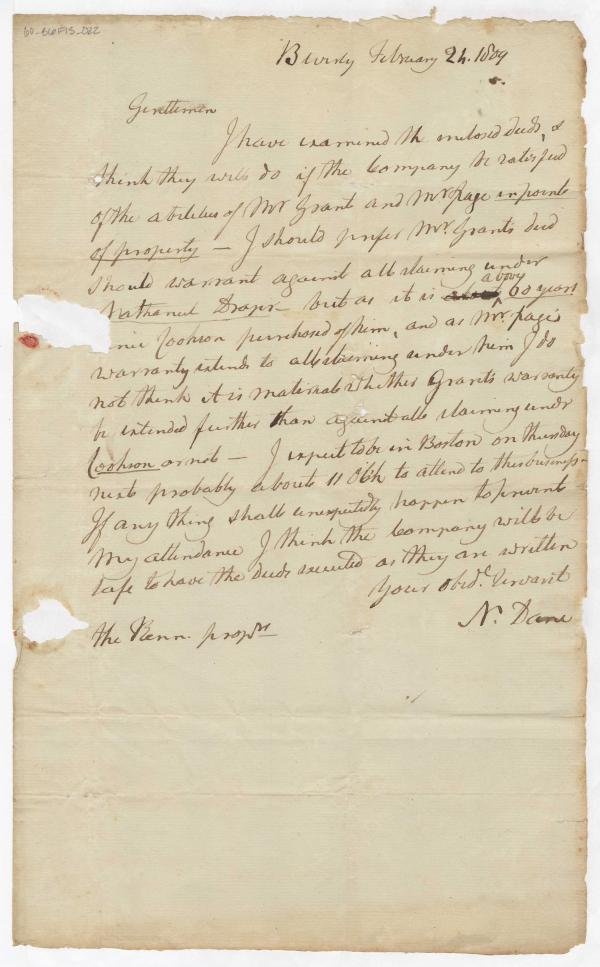 60-B6F15-D22
Beverly February 24. 1809
Gentlemen
I have examined the inclosed deeds, &
think they will do if the Company be satisfied
of the abilities of Mr Grant and Mr Page in point
of property — I should prefer Mr. Grants deed
should warrant against all claiming under
Nathaniel Draper but as it is above 60 years
since Cookson purchased of him, and as Mr. Page's
warranty extends to all claiming under him I do
not think it is material whether Grants warranty
be extended further than against all claiming under
Cookson or not — I expect to be in Boston on thursday
next probably about 11 oCk to attend to this business —
If any thing shall unexpectedly happen to prevent
my attendance I think the Company will be
safe to have the deeds executed as they are written
Your obedt. Servant
N. Dane
the Kenn. proprs